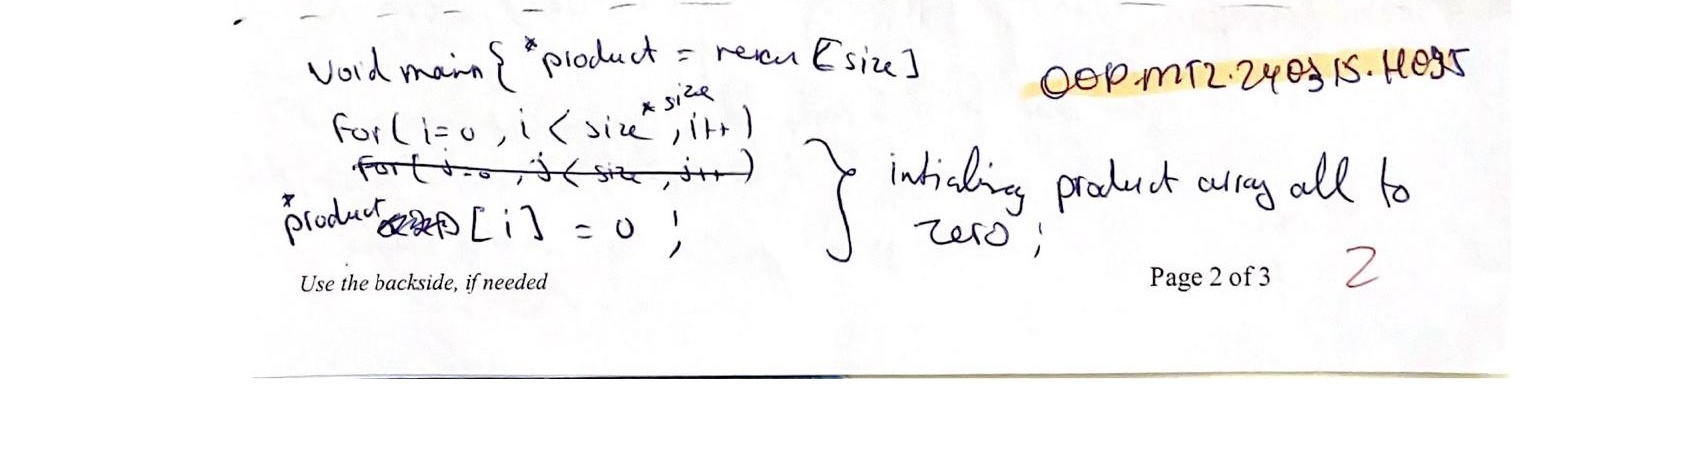 void main{ *product = [size]
OOP.MT2.240315.H095
for( i=0 , i < size * size , i++)
for( j=0 , j < size , j++)
*product [i] = 0 ;
intializing product array all to
zero ;
Use the backside, if needed
Page 2 of 3
2